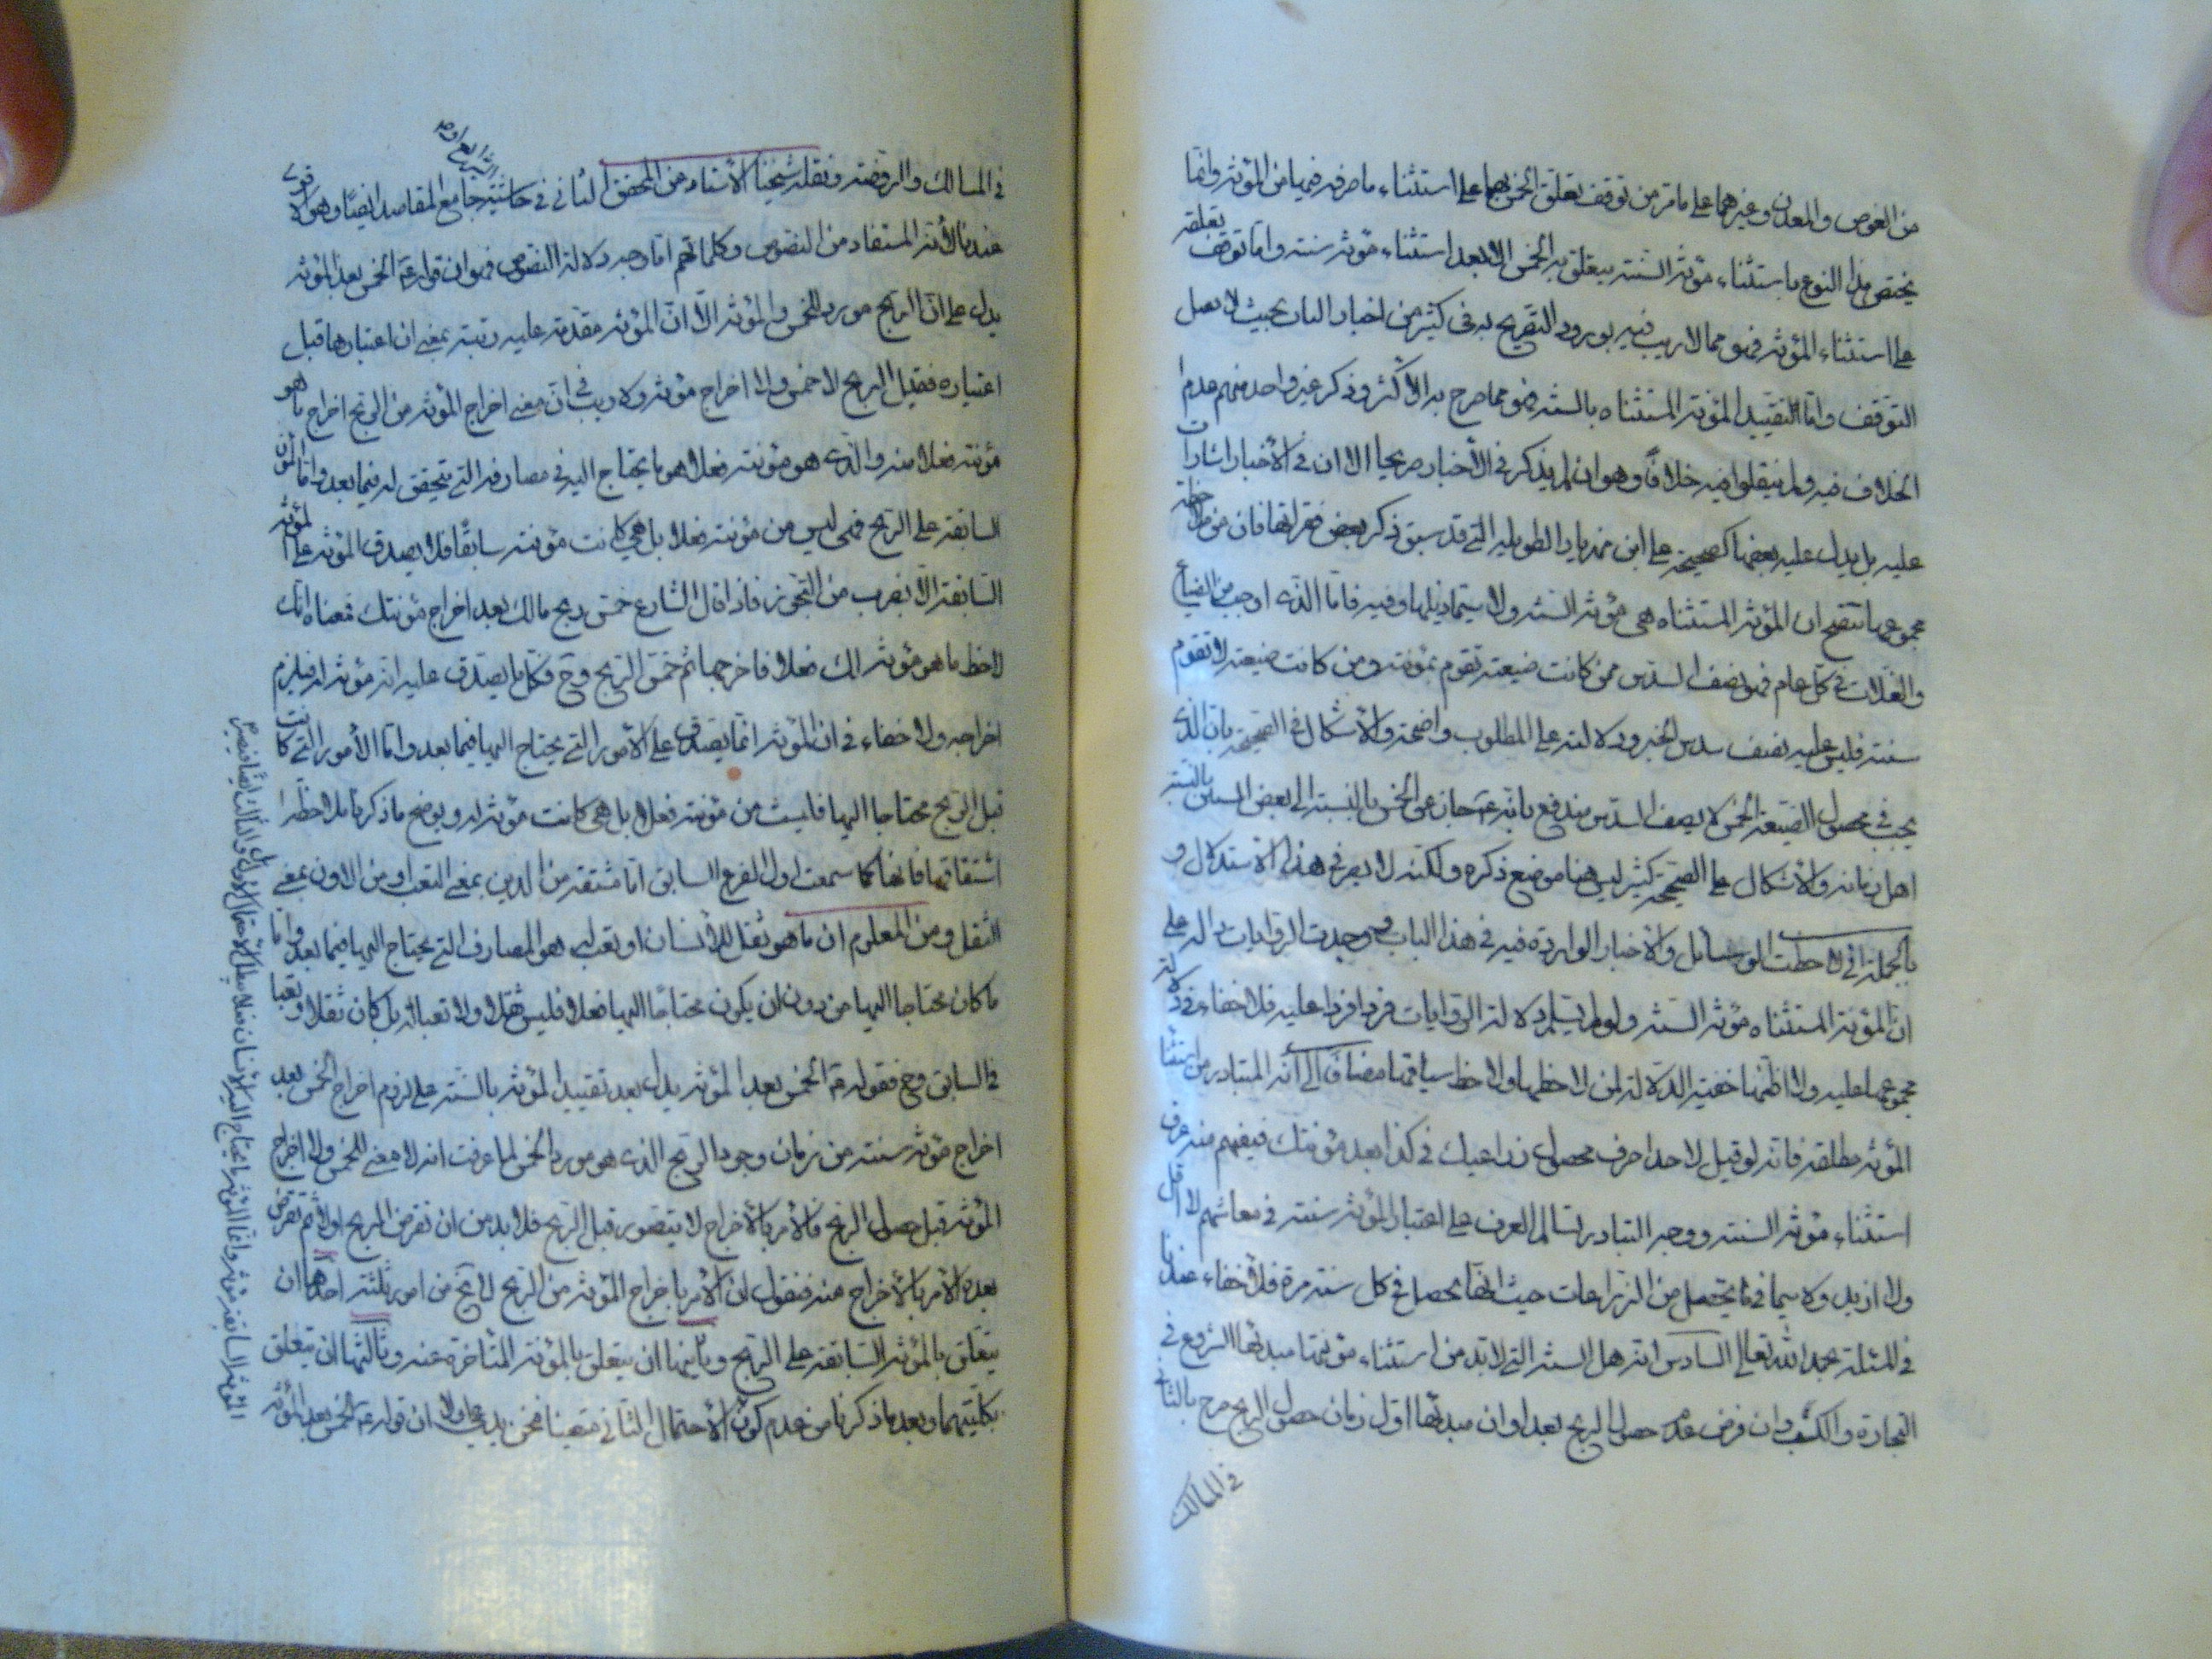 من الغوص والمعدن وغيرهما على ما مرّ من توقف تعلّق الخمس بهما على استثناء ما صرف فيهما من المؤنة وانّما
يختص هذا النوع باستثناء مؤنة السّنة يتعلق به الخمس الا بعد استثناء مؤنة سنته وامّا توقف تعلقه
على استثناء المؤنة فهو ممّا لا ريب فيه بورود التصريح به في كثير من اخبار الباب بحيث لا يعمل
التوقف وامّا تقييد المؤنة المستثناه بالسنة فهو مما صرح به الأكثر وذكر غير واحد منهم عدم
الخلاف فيه ولم ينقلوا فيه خلافاً وهو ان لم يذكر في الأخبار صريحا الا ان في الأخبار اشارات
عليه بل يدل عليه بعضها كصحيحة على ابن مهزيار الطويله التي قد سبق ذكر بعض فقراتها فان من ملاحظة
مجموعها يتضح ان المؤنة المستثناه هي مؤنة السنة ولا سيّما ذيلها وفيه فامّا الذى اوجب من الضياع
والغلات في كل عام فهو نصف السدس ممن كانت ضيعته تقوم بمؤنته ومن كانت ضيعته لا تقوم
سنته فليس عليه نصف سدس الخبر ودلالته على المطلوب واضحة والاشكال في الصحيحة بان الذى
يجب في محصول الضيعة الخمس لا نصف السدس يندفع بانه ع جاز عن الخمس بالنسبة الى بعض السنين بالنسبة
اهل زمانه والأشكال على الصحيحة كثير ليس هنا موضع ذكره ولكنه لا يضر في هذا الاستدلال و
بالجملة اذا لاحظت الوسائل والأخبار الوارده فيه في هذا الباب وجدت الروايات دالة على
انّ المؤنة المستثناه مؤنة السنة ولو لم يسلم دلالة الروايات فردا فردا عليه فلا خفاء في دلالة
مجموعها عليه ولا اظنها خفية الدلالة لمن لاحظها ولاحظ سياقها مضافاً الى انه المتبادر من استثناء
المؤنة مطلقة فانه لو قيل لاحد اصرف محصول زراعتك في كذا بعد مؤنتك فيفهم منه عرف
استثناء مؤنة السنة ووجه التبادر تسالم العرف على اعتبار المؤنة سنته في معاشهم لا اقل
ولا ازيد ولا سيما فيما يحصل من الزراعات حيث انها تحصل في كل سنة مرة فلا خفاء عندنا
في المسئلة بحمد الله تعالى السادس انه هل السنة التى لابد من استثناء مؤنتها مبدئها الشروع في
التجارة والكسب وان فرض عدم حصول الربح بعد اوان مبدئها اول زمان حصول الربح صرح بالثاني
في المسالك
في المسالك والروضة ونقله شيخنا الأستاد عن المحقق الثاني في حاشية جامع المقاصد ايضا وهو الاقوى
عندنا لأنه المستفاد من النصوص وكلماتهم امّا وجه دلالة النصوص فهو ان قوله ع الخمس بعد المؤنة
يدل على انّ الربح مورد للخمس والمؤنة الّا انّ المؤنة مقدمة عليه رتبة بمعنى ان اعتبارها قبل
اعتباره فقبل الربح لا خمس ولا اخراج مؤنة ولا ريب في انّ معنى اخراج المؤنة من الربح اخراج ما هو
مؤنته فعلا منه والذى هو مؤنته فعلا هو ما يحتاج اليه في مصارفه التى يتحقق له فيما بعد وامّا المؤن
السابقة على الربح فهى ليس من مؤنته فعلا بل هى كانت مؤنته سابقا فلا يصدق المؤنة على المؤنة
السّابقة الّا بضرب من التجوز فاذا قال الشارع خمس ربح مالك بعد اخراج مؤنتك فمعناه انّك
لاحظ ما هو مؤنة لك فعلا فاخرجها ثم خمس الربح وح فكل ما يصدق عليه انه مؤنة له فيلزم
اخراجه ولا خفاء في ان المؤنة انّما يصدق على الأمور التى يحتاج اليها فيما بعد وامّا الأمور التى كانت
قبل الربح محتاجا اليها فليست من مؤنته فعلا بل هى كانت مؤنة له ويوضح ما ذكرنا ملاحظة
اشتقاقها فانها كما سمعت اول الفرع السابق امّا مشتقة من الاين بمعنى التعب او من الاون بمعنى
الثقل ومن المعلوم ان ما هو ثقل للأنسان او تعب له هو المصارف التى يحتاج اليها فيما بعد وامّا
ما كان محتاجا اليها من دون ان يكون محتاجا اليها فعلا فليس ثقلا ولا تعبا له بل كان ثقلا وتعبا
في السابق وح فقوله ع الخمس بعد المؤنة يدل بعد تقييد المؤنة بالسنة على لزوم اخراج الخمس بعد
اخراج مؤنة سنته من زمان وجود الربح الذى هو مورد الخمس لما عرفت انه لا معنى للخمس ولا اخراج
المؤنة قبل حصول الربح فالأمر بالأخراج لا يتصور قبل الربح فلا بد من ان نفرض الربح اولا ثم نفرض
بعده الأمر بالأخراج منه فنقول ان الأمر باخراج المؤنة من الربح لا يخ من امور ثلثة احدها ان
يتعلق بالمؤنة السّابقة على الربح وثانيها ان يتعلق بالمؤنة المتأخرة عنه وثالثها ان يتعلق
بكليتهما وبعد ما ذكرنا من عدم كون الاحتمال الثانى متعينا فنحن ندعى اولا ان قوله ع الخمس بعد المؤنة